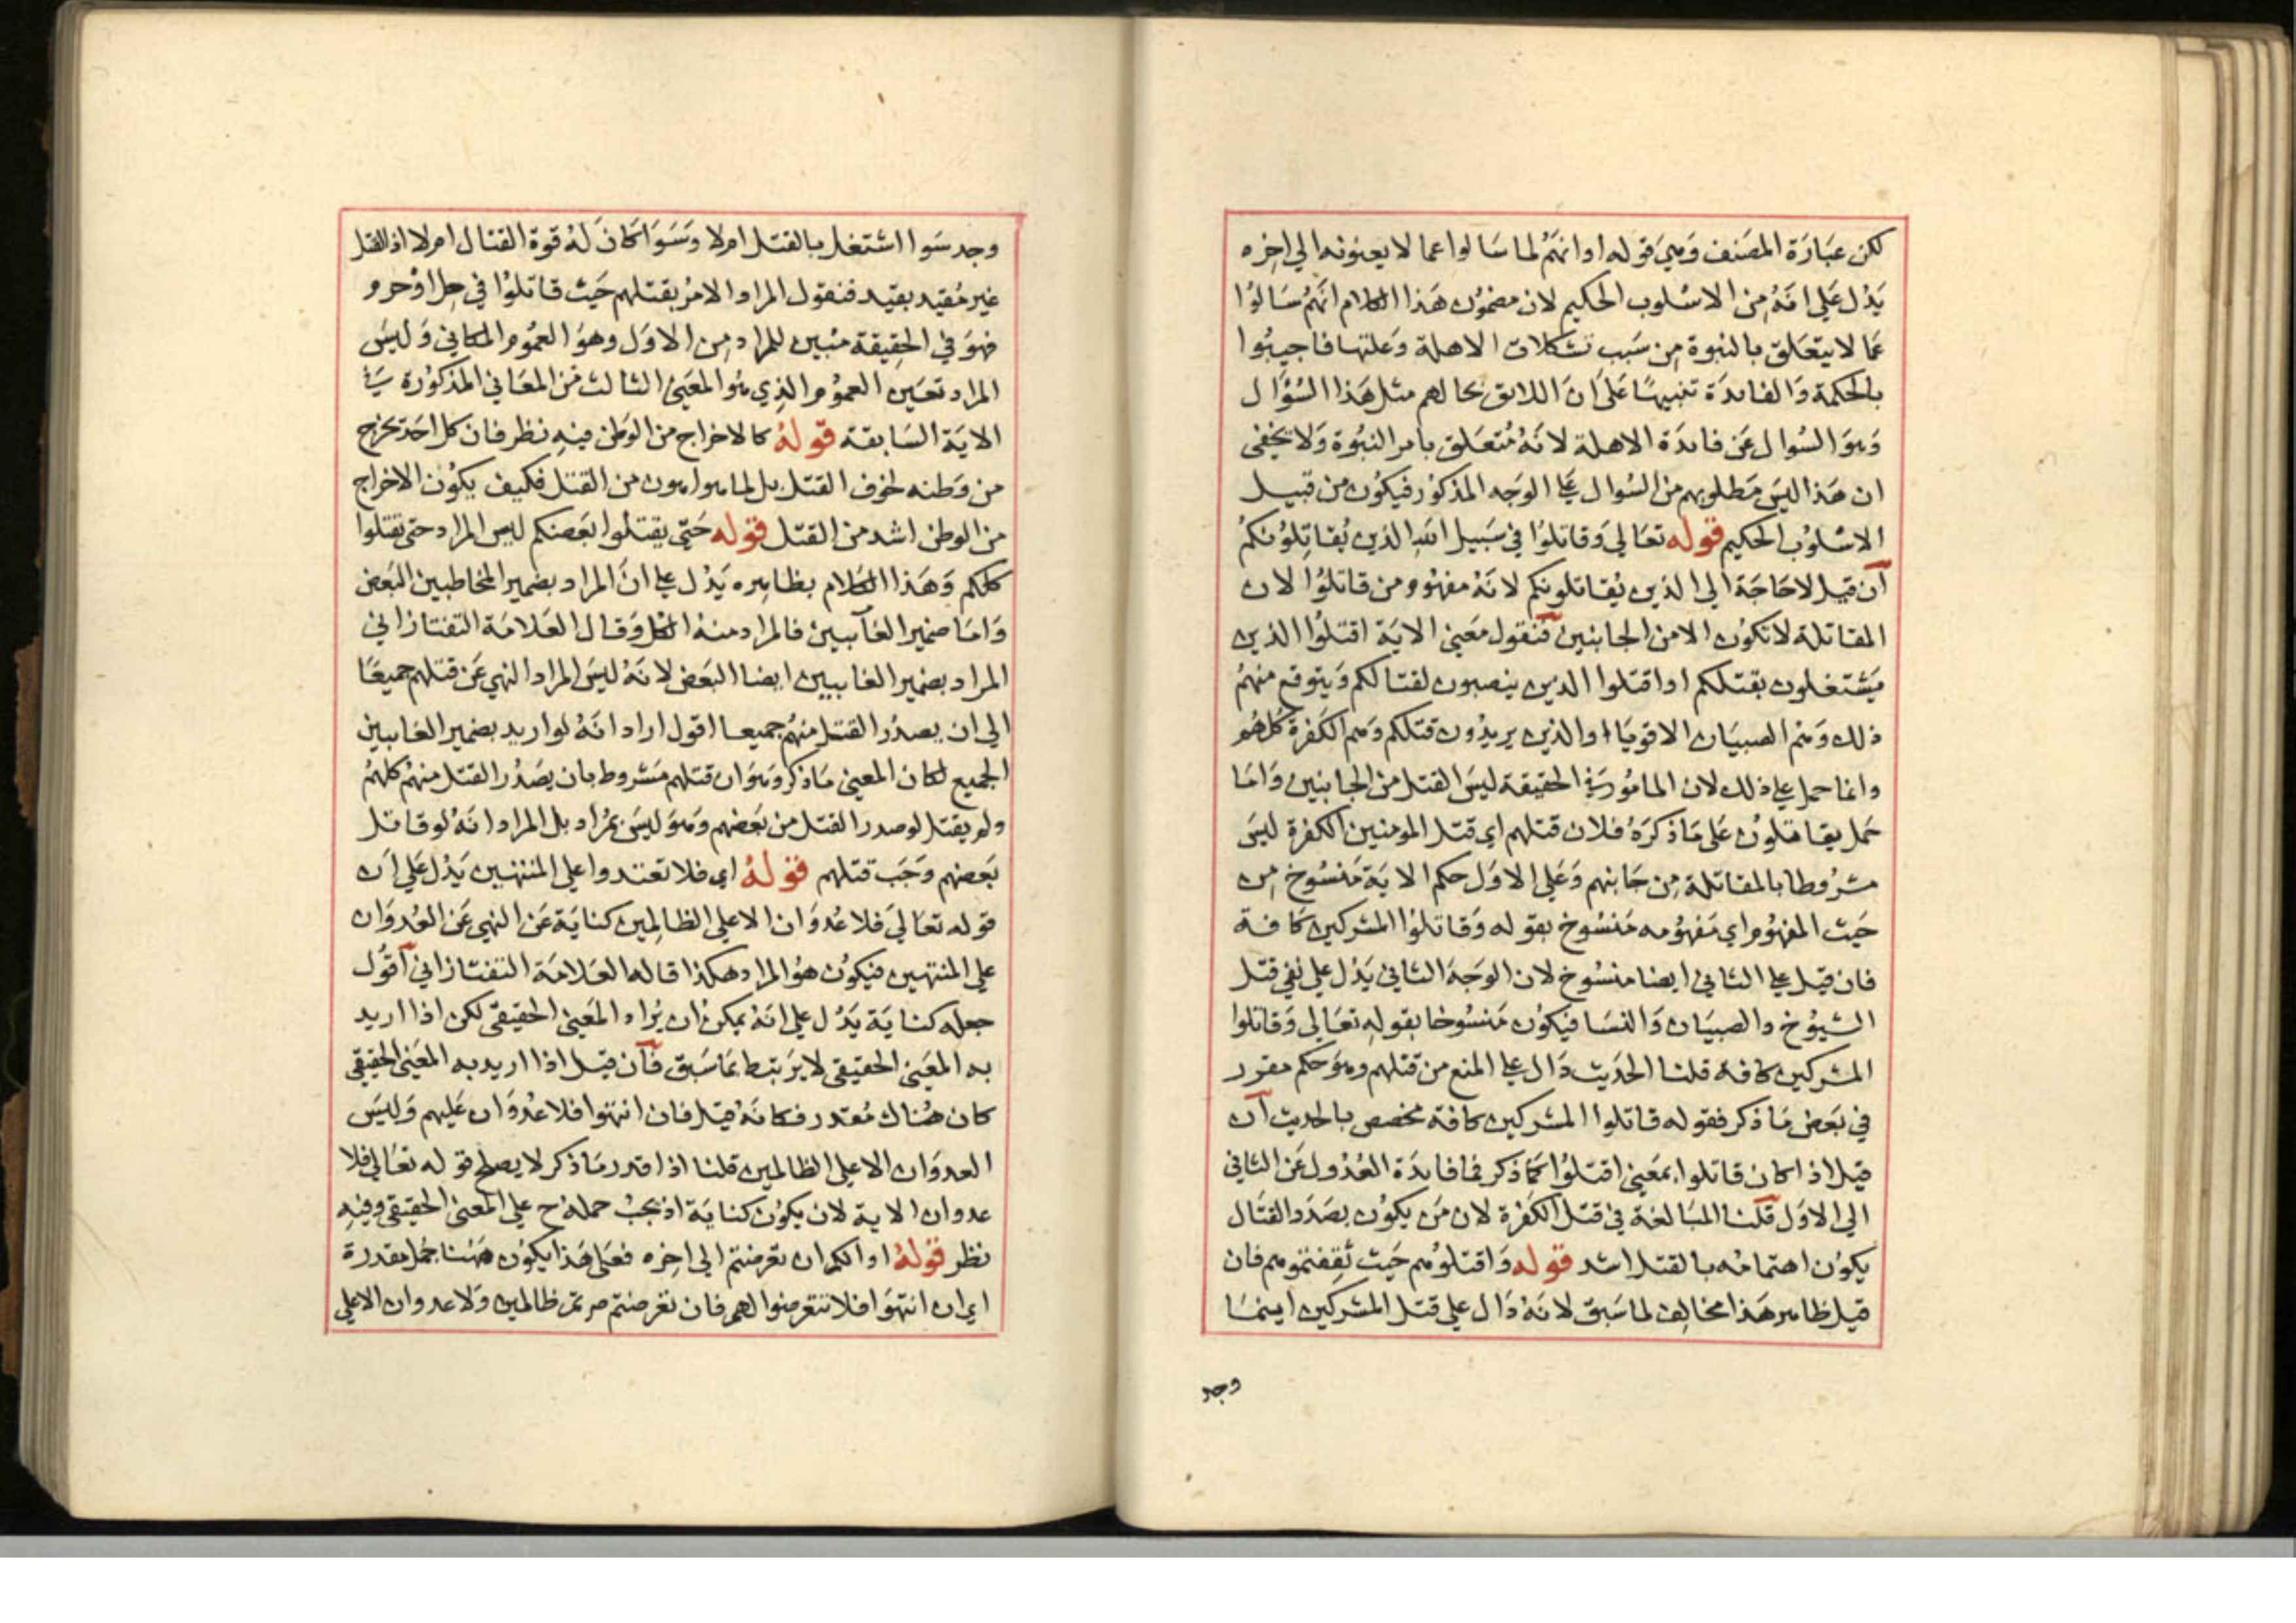 لكن عبارة المصنف وهي قوله او انهم لما سالوا عما لا يعنونه الي اخره
يدل علي انه من الاسلوب الحكيم لان مضمون هذا الكلام انهم سالوا
عما لا يتعلق بالنبوة من سبب تشكلات الاهلة وعلتها فاجيبوا
بالحكمة والفايدة تنبيها علي ان اللايق بحالهم مثل هذا السؤال
وهو السوال عن فايدة الاهلة لانه متعلق بامر النبوة ولا يخفي
ان هذا ليس مطلوبهم من السوال علي الوجه المذكور فيكون من قبيل
الاسلوب الحكيم قوله تعالي وقاتلوا في سبيل الله الذين يقاتلونكم
ان قيل لا حاجة الي الذين يقاتلونكم لانه مفهوم من قاتلوا لان
المقاتلة لا تكون الا من الجانبين فنقول معني الاية اقتلوا الذين
يشتغلون بقتلكم او اقتلوا الذين ينصبون لقتالكم ويتوقع منهم
ذلك وهم الصبيان الاقويا او الذين يريدون قتلكم وهم الكفرة كلهم
وانما حمل علي ذلك لان المامور في الحقيقة ليس القتل من الجانبين واما
حمل يقاتلون علي ما ذكره فلان قتلهم اي قتل المومنين الكفرة ليس
مشروطا بالمقاتلة من جانبهم وعلي الاول حكم الاية منسوخ من
حيث المفهوم اي مفهومه منسوخ بقوله وقاتلوا المشركين كافة
فان قيل علي الثاني ايضا منسوخ لان الوجه الثاني يدل علي نفي قتل
الشيوخ والصبيان والنسا فيكون منسوخا بقوله تعالي وقاتلوا
المشركين كافة قلنا الحديث دال علي المنع من قتلهم وهو حكم مقرر
في بعض ما ذكر فقوله قاتلوا المشركين كافة مخصص بالحديث ان
قيل اذا كان قاتلوا بمعني اقتلوا كما ذكر فما فايدة العدول عن الثاني
الي الاول قلنا المبالغة في قتل الكفرة لان من يكون بصدد القتال
يكون اهتمامه بالقتل اشد قوله واقتلوهم حيث ثقفتموهم فان
قيل ظاهر هذا مخالف لما سبق لانه دال علي قتل المشركين اينما
وجد
وجد سوا اشتغل بالقتل ام لا وسوا كان له قوة القتال ام لا اذ القتل
غير مقيد بقيد فنقول المراد الامر بقتلهم حيث قاتلوا في حل او حرم
فهو في الحقيقة مبين للمراد من الاول وهو العموم المكاني وليس
المراد تعيين العموم الذي هو المعني الثالث من المعاني المذكورة في
الاية السابقة قوله كالاخراج من الوطن فيه نظر فان كل احد يخرج
من وطنه لخوف القتل بل لما هو اهون من القتل فكيف يكون الاخراج
من الوطن اشد من القتل قوله حتي يقتلوا بعضكم ليس المراد حتي تقتلوا
كلكم وهذا الكلام بظاهره يدل علي ان المراد بضمير المخاطبين البعض
واما ضمير الغايبين فالمراد منه الكل وقال العلامة التفتازاني
المراد بضمير الغايبين ايضا البعض لانه ليس المراد النهي عن قتلهم جميعا
الي ان يصدر القتل منهم جميعا اقول اراد انه لو اريد بضمير الغايبين
الجميع لكان المعني ما ذكر وهو ان قتلهم مشروط بان يصدر القتل منهم كلهم
ولم يقتل لو صدر القتل من بعضهم وهو ليس بمراد بل المراد انه لو قاتل
بعضهم وجب قتلهم قوله اي فلا تعتدوا علي المنتهين يدل علي ان
قوله تعالي فلا عدوان الا علي الظالمين كناية عن النهي عن العدوان
علي المنتهين فيكون هو المراد هكذا قاله العلامة التفتازاني اقول
جعله كناية يدل علي انه يمكن ان يراد المعني الحقيقي لكن اذا اريد
به المعني الحقيقي لا يرتبط بما سبق فان قيل اذا اريد به المعني الحقيقي
كان هناك مقدر فكانه قيل فان انتهوا فلا عدوان عليهم وليس
العدوان الا علي الظالمين قلنا اذا قدر ما ذكر لا يصلح قوله تعالي فلا
عدوان الاية لان يكون كناية اذ يجب حمله ح علي المعني الحقيقي وفيه
نظر قوله او انكم ان تعرضتم الي اخره فعلي هذا يكون ههنا جمل مقدرة
اي ان انتهوا فلا تتعرضوا لهم فان تعرضتم صرتم ظالمين ولا عدوان الا علي